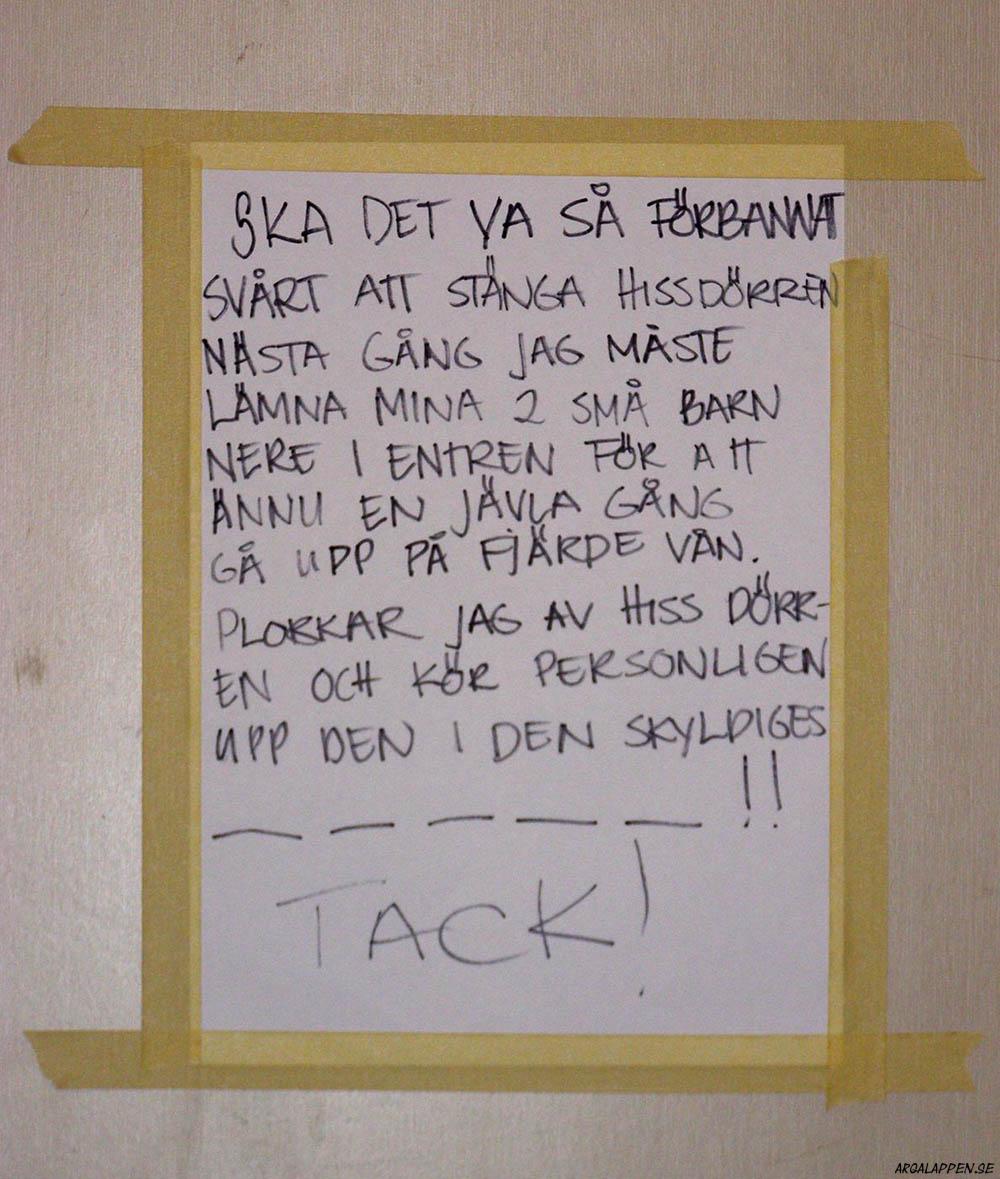 SKA DET VA SÅ FÖRBANNAT
SVÅRT ATT STÄNGA HISSDÖRREN
NÄSTA GÅNG JAG MÅSTE
LÄMNA MINA 2 SMÅ BARN
NERE I ENTREN FÖR ATT
ÄNNU EN JÄVLA GÅNG
GÅ UPP PÅ FJÄRDE VÅN.
PLOCKAR JAG AV HISS DÖRR-
EN OCH KÖR PERSONLIGEN
UPP DEN I DEN SKYLDIGES
_ _ _ _ _ !!
TACK!
ARGALAPPEN.SE